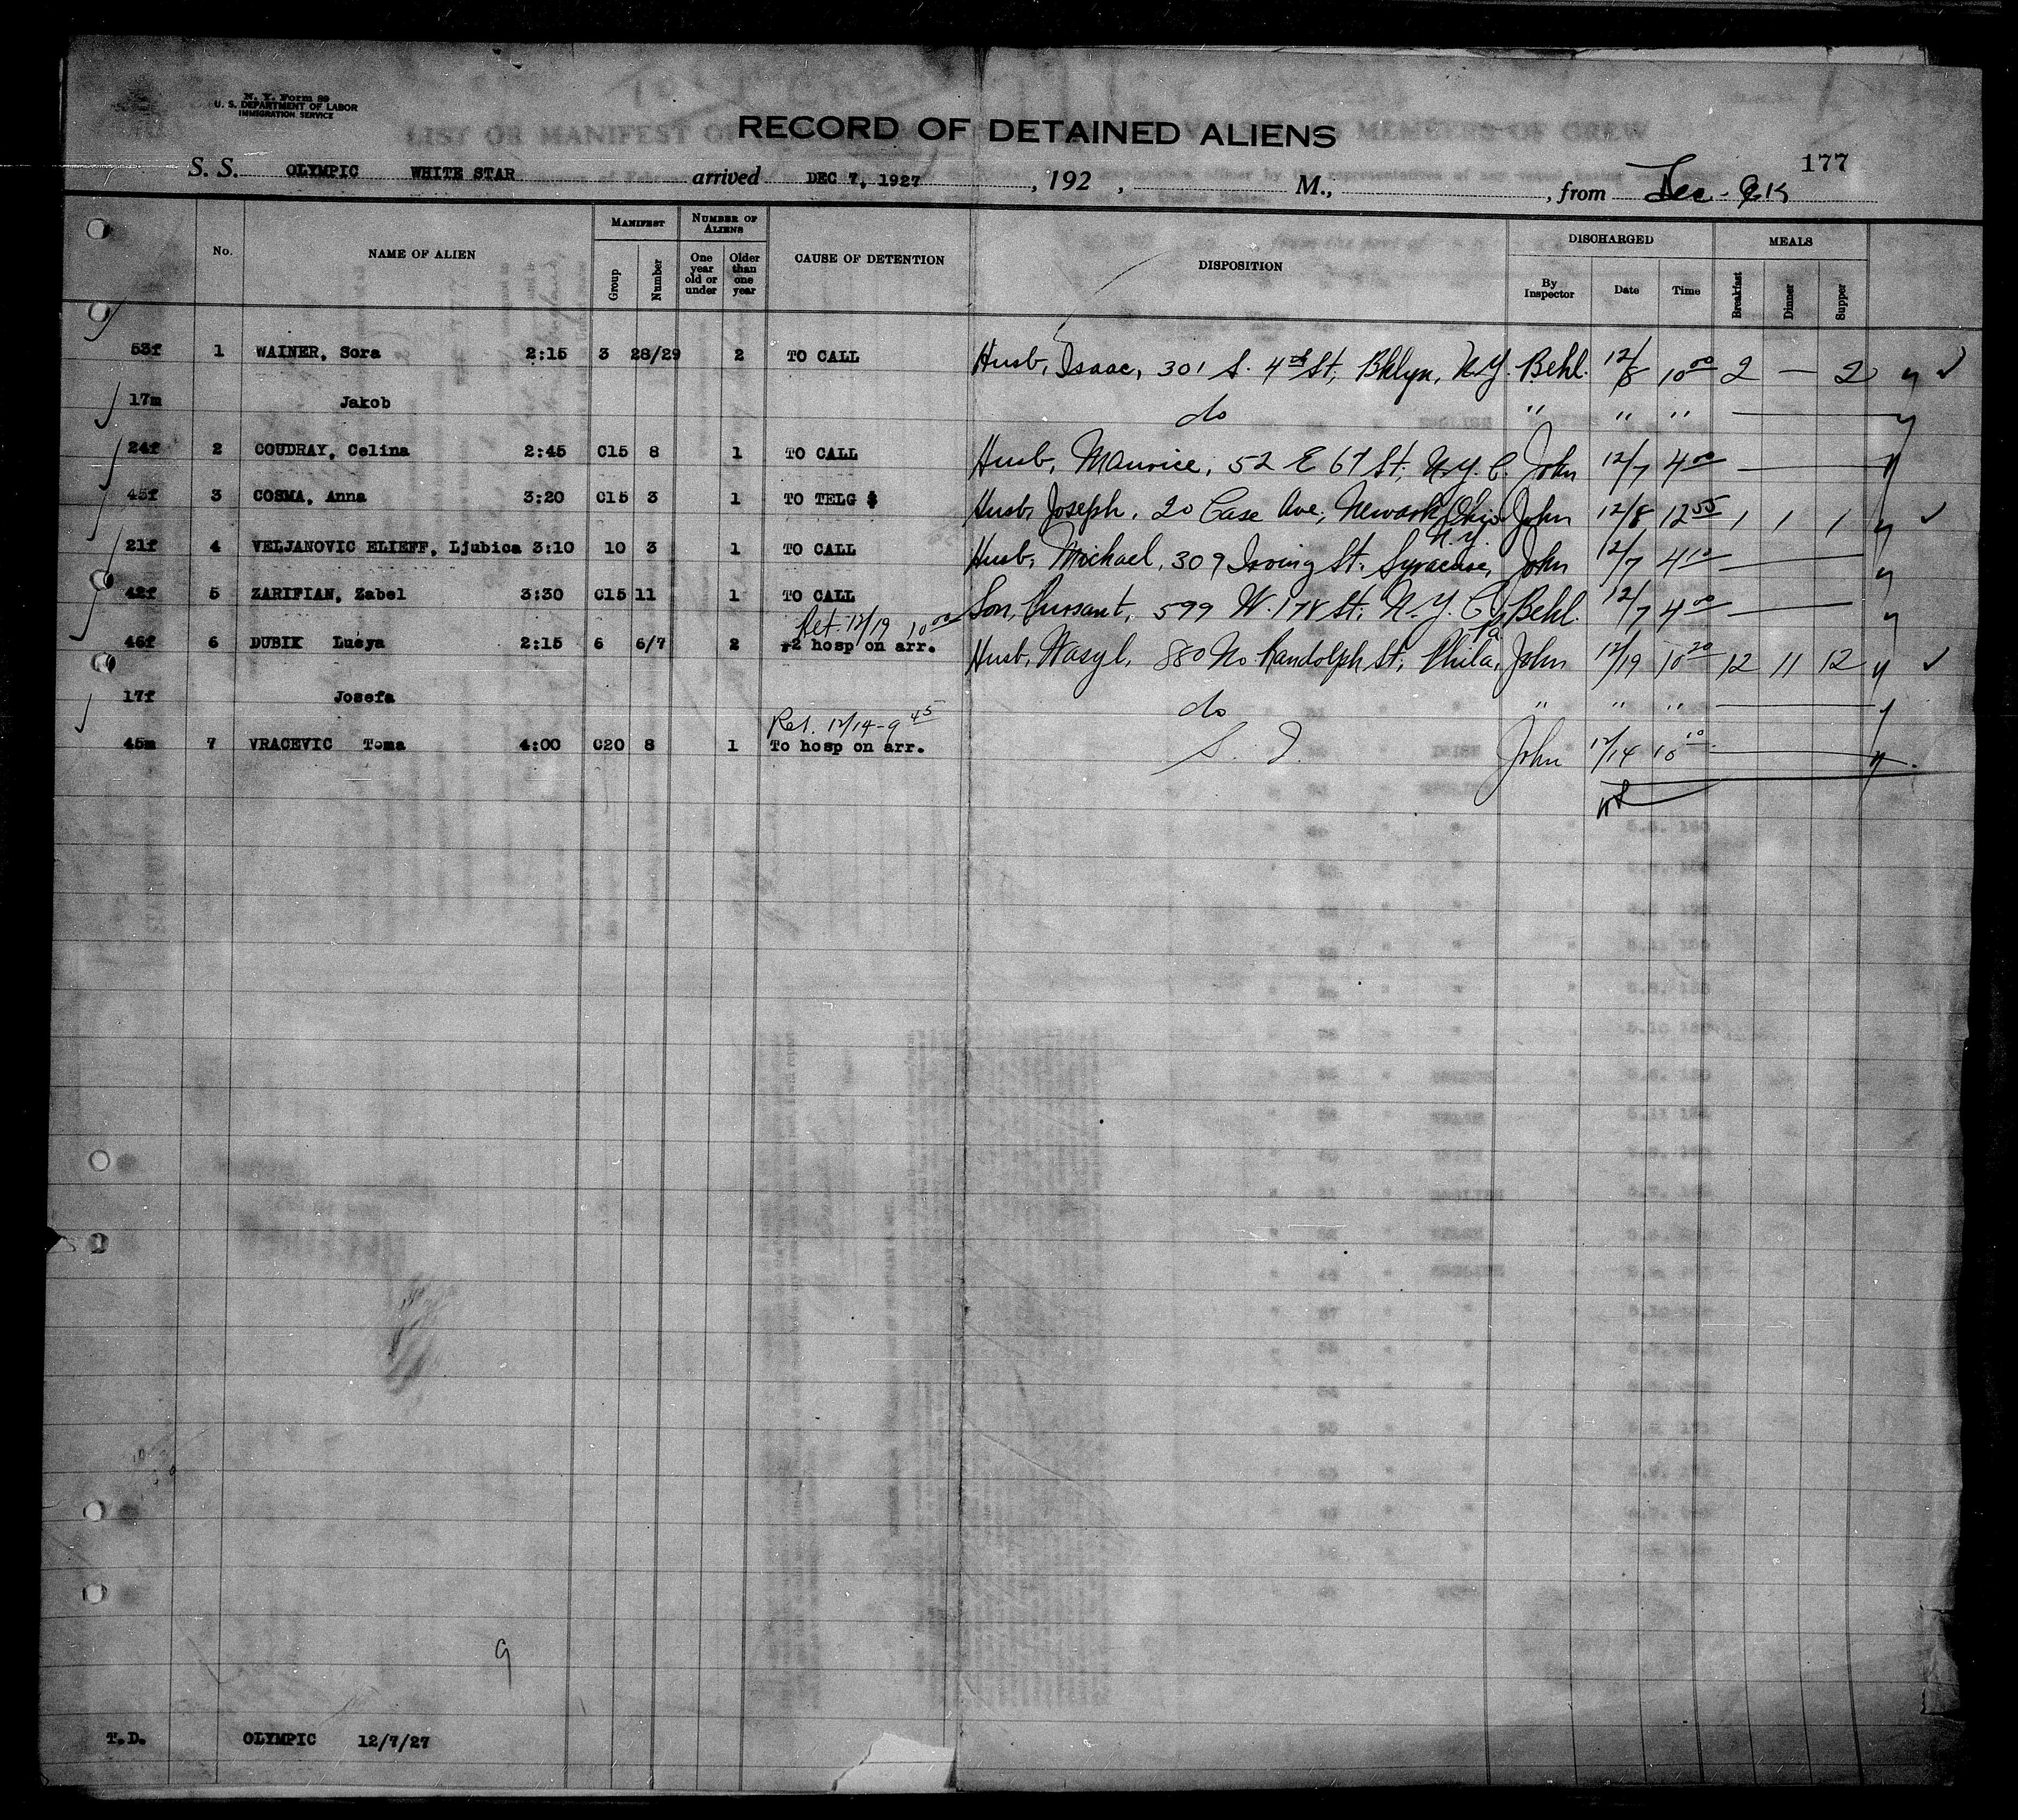 N. Y. Form 89
U. S. DEPARTMENT OF LABOR
IMMIGRATION SERVICE
RECORD OF DETAINED ALIENS
177
S. S. OLYMPIC WHITE STAR arrived DEC 7, 1927, 192 , M., from Dec.
No. NAME OF ALIEN MANIFEST Group Number NUMBER OF ALIENS One year old or under Older than one year CAUSE OF DETENTION DISPOSITION DISCHARGED By Inspector Date Time MEALS Breakfast Dinner Supper
53f 1 WAINER, Sora 2:15 3 28/29 2 TO CALL Husb, Isaac, 301 S. 4th St, Bklyn, N.Y. Behl. 12/8 10 00 2 — 2
17m Jakob do " " "
24f 2 COUDRAY, Celina 2:45 C15 8 1 TO CALL Husb, Maurice, 52 E 67 St, N.Y.C. John 12/7 4 00
45f 3 COSMA, Anna 3:20 C15 3 1 TO TELG $ Husb, Joseph, 20 Case Ave, Newark, Ohio John 12/8 12 55 1 1 1
21f 4 VELJANOVIC ELIEFF, Ljubica 3:10 10 3 1 TO CALL Husb, Michael, 309 Irving St. Syracuse, N.Y. John 12/7 4 10
42f 5 ZARIFIAN, Zabel 3:30 C15 11 1 TO CALL Son, 599 W. 178 St. N.Y.C. Behl. 12/7 4 00
Ret. 12/19 10 00
46f 6 DUBIK Lucya 2:15 6 6/7 2 2 hosp on arr. Husb, Wasyl, 880 No. Randolph St, Phila, Pa John 12/19 10 20 12 11 12
17f Josefa do " " "
Ret. 12/14-9 45
45m 7 VRACEVIC Toma 4:00 C20 8 1 To hosp on arr. S. I. John 12/14 10 10
9
T.D. OLYMPIC 12/7/27